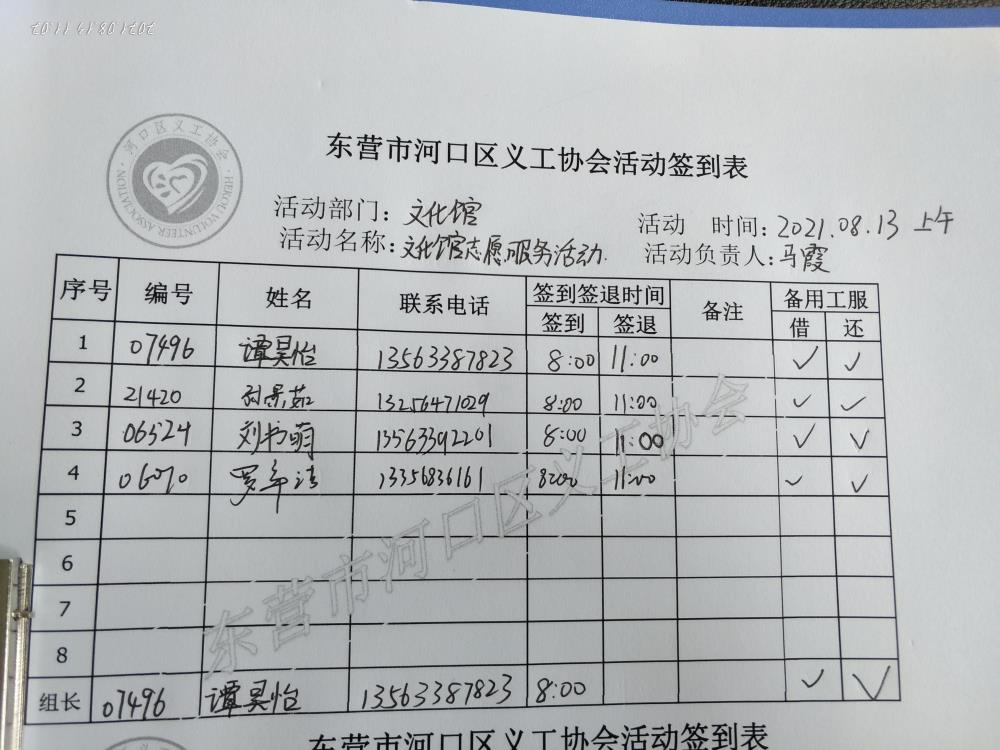 2021 08 13 11:02
河口区义工协会
HEKOU VOLUNTEER ASSOCIATION
东营市河口区义工协会活动签到表
活动部门：文化馆 活动 时间：2021.08.13 上午
活动名称：文化馆志愿服务活动. 活动负责人：马霞
序号 编号 姓名 联系电话 签到签退时间 备注 备用工服
签到 签退 借 还
1 07496 谭昊怡 13563387823 8:00 11:00 ✓ ✓
2 21420 孙景茹 13256471029 8:00 11:00 ✓ ✓
3 06524 刘书萌 13563392201 8:00 11:00 ✓ ✓
4 13356836161 8:00 11:00 ✓ ✓
5
6
7
8
组长 07496 谭昊怡 13563387823 8:00 ✓ ✓
东营市河口区义工协会
东营市河口区义工协会活动签到表